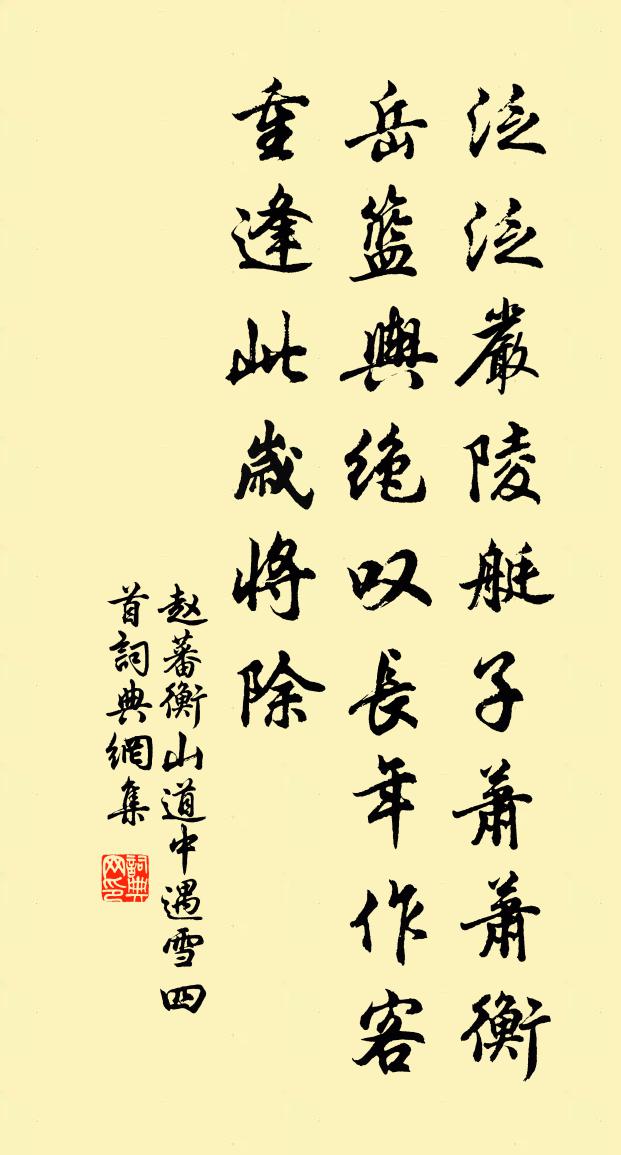 泛泛嚴陵艇子蕭蕭衡
岳籃輿絶叹長年作客
重逢此歲將除
赵蕃衡山道中遇雪四
首詞典網集
詞典网印